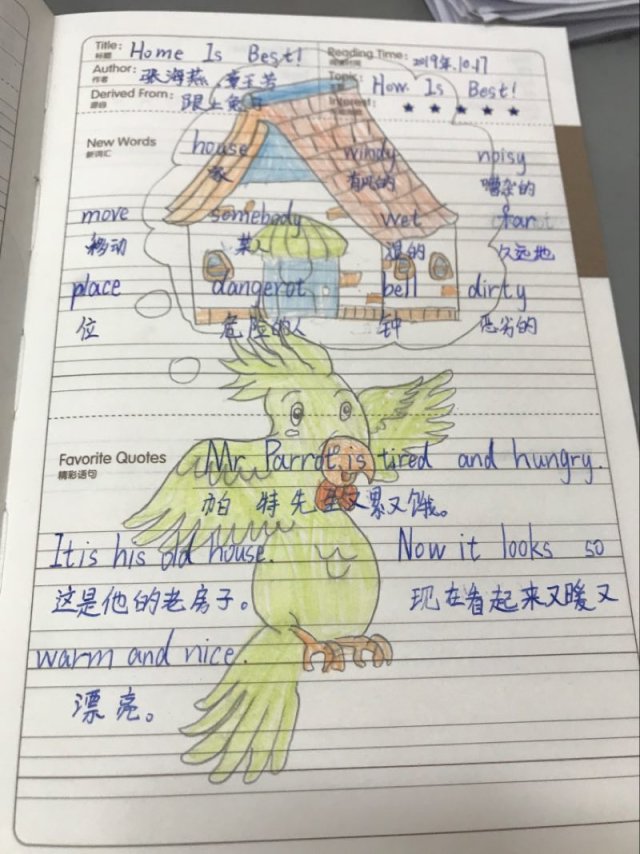 Title: Home Is Best! Reading Time: 2019年.10.17
标题
Author: 张海燕,童玉芳 Topic: How Is Best!
作者
Derived From: Interest: ★ ★ ★ ★ ★
New Words house windy noisy
新词汇 家 有风的 嘈杂的
move somebody wet far
移动 某人 湿的 久远地
place dangerot bell dirty
位 危险的人 钟 恶劣的
Favorite Quotes Mr. Parrot is tired and hungry.
精彩语句 帕 特先生又累又饿。
It is his old house. Now it looks so
这是他的老房子。 现在看起来又暖又
warm and nice.
漂亮。